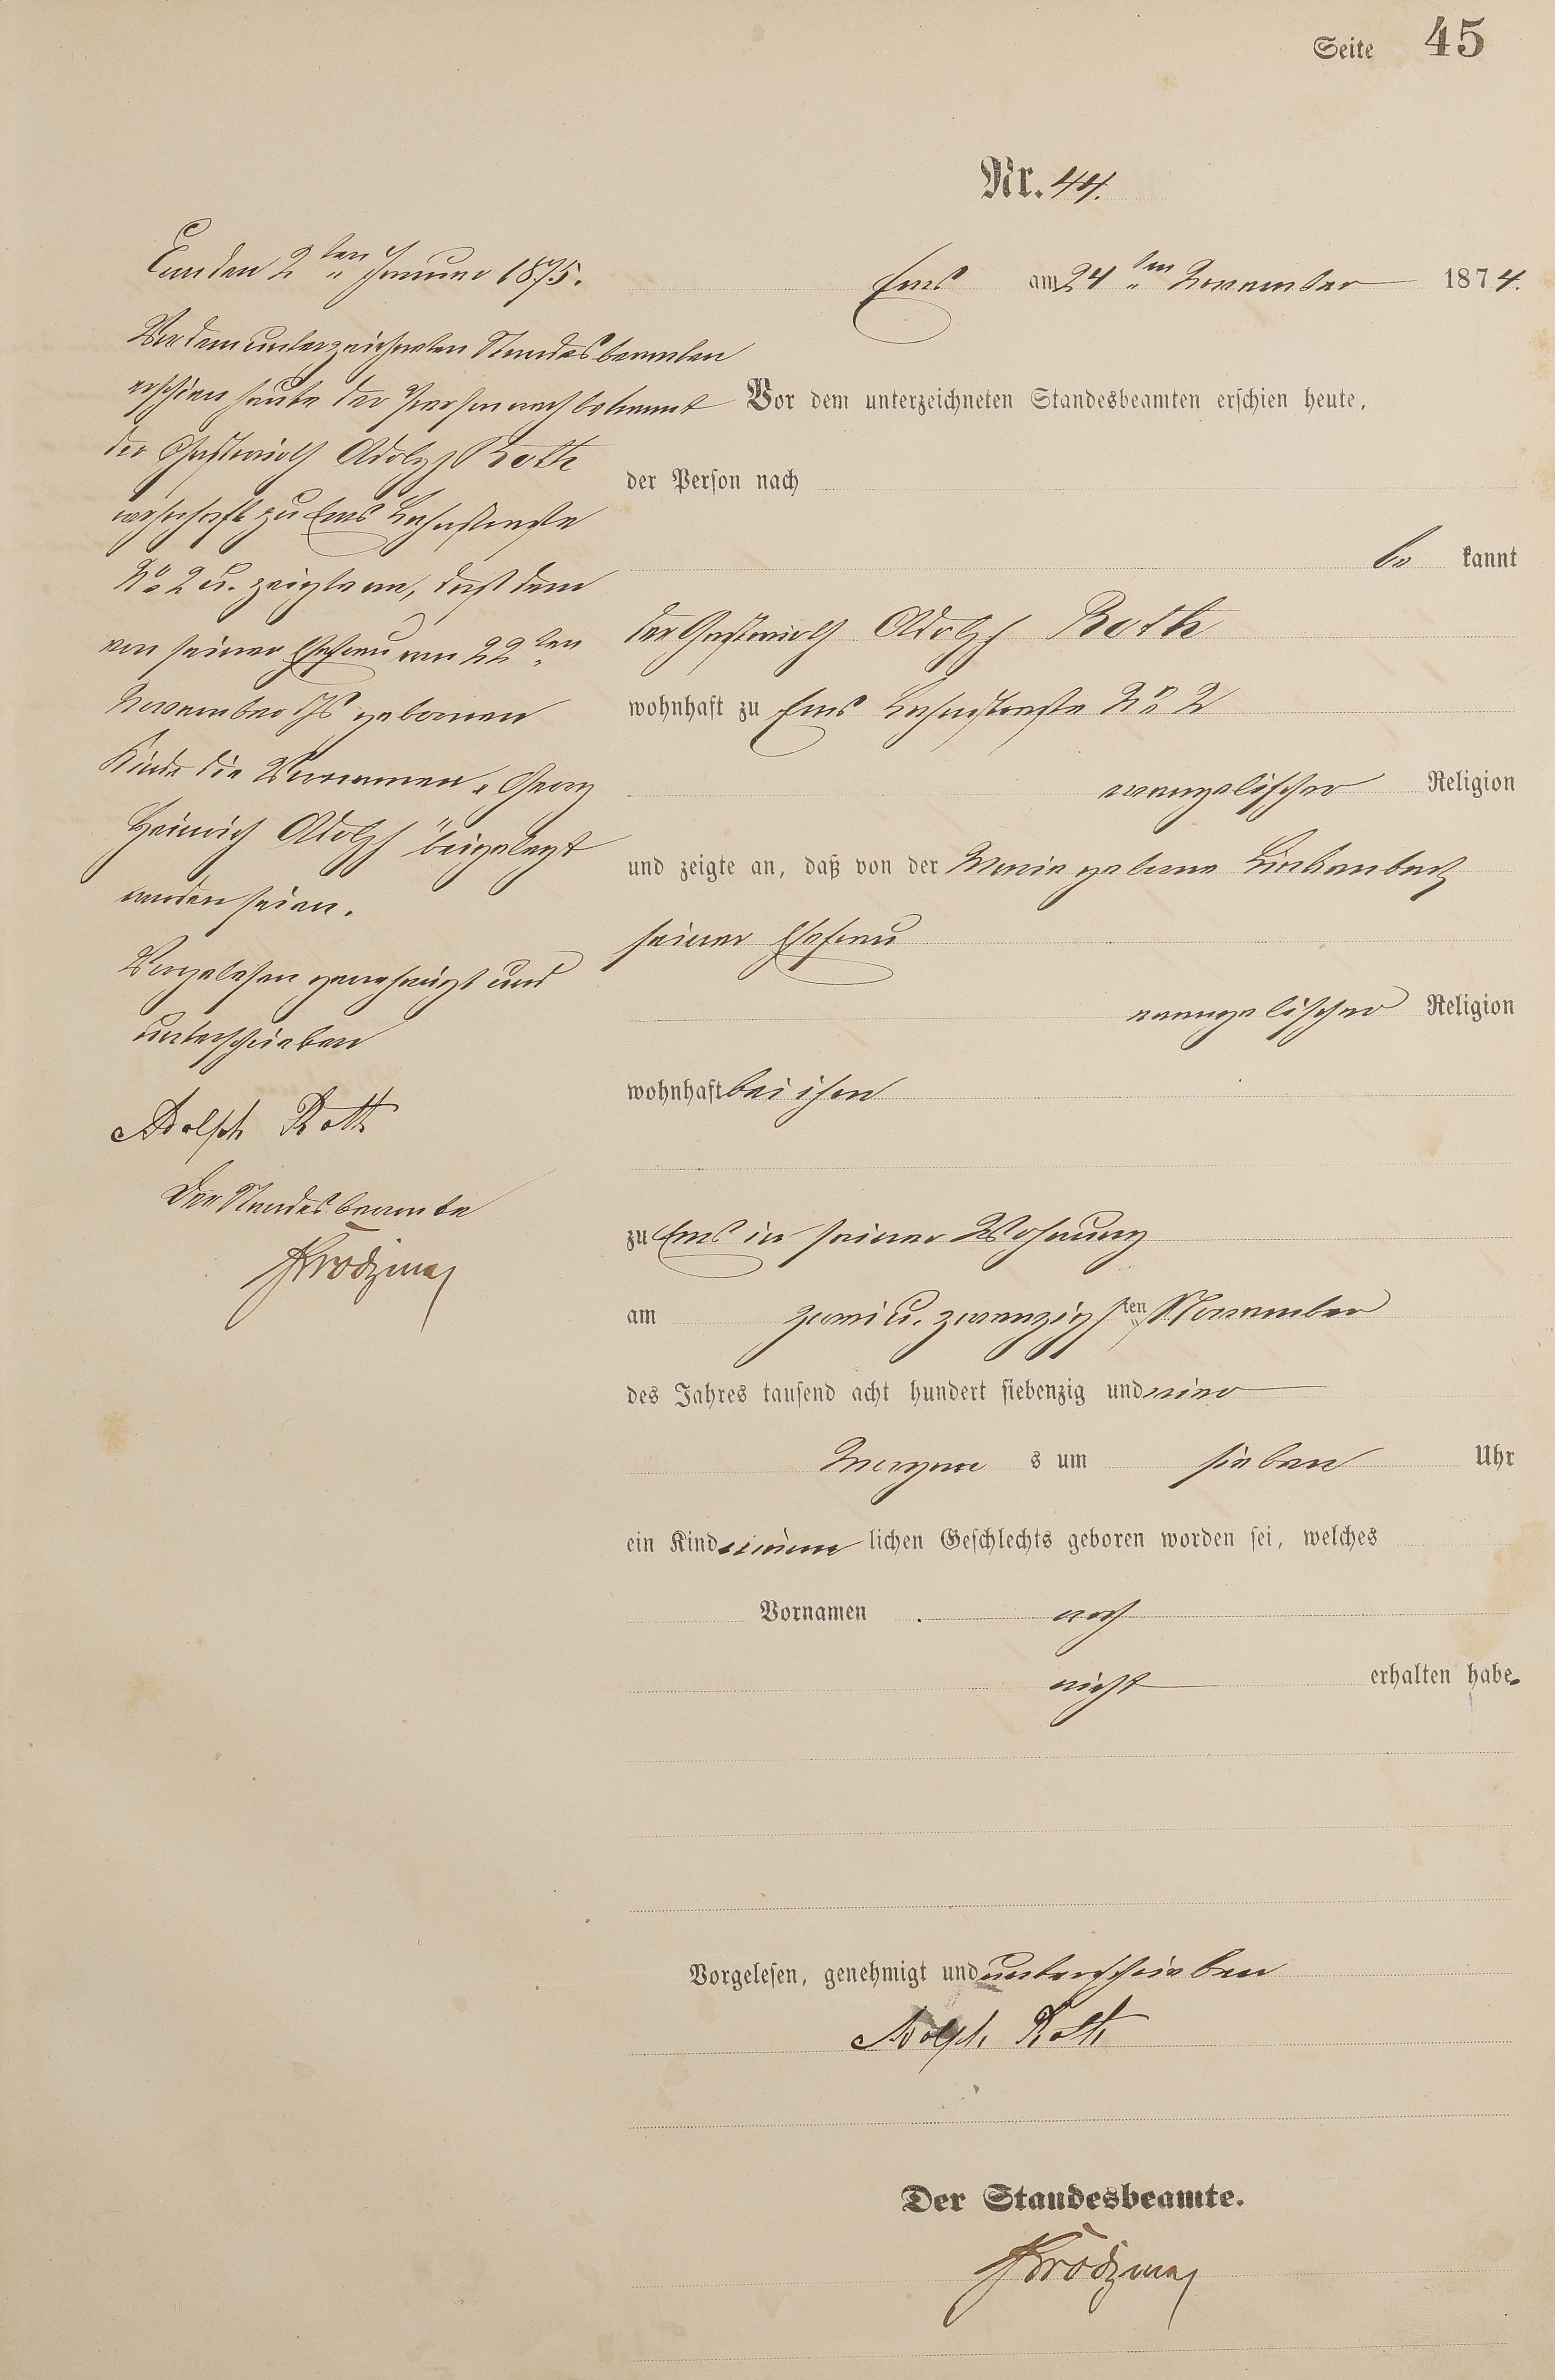 Seite 45
Nr. 44.
Ems den 2ten Januar 1875.
Vor dem unterzeichneten Standesbeamten
erschien heute der Person nach bekannt
der Gastwirth Adolph Roth
wohnhaft zu Ems Lahnstraße
No 2 u. zeigte an, daß dem
von seiner Ehefrau am 22ten
November geborenen
Kinde die Vornamen „Georg
Heinrich Adolph" beigelegt
worden seien.
Vorgelesen genehmigt und
unterschrieben
Adolph Roth
Der Standesbeamte
Ems am 24ten November 1874.
Vor dem unterzeichneten Standesbeamten erschien heute,
der Person nach
be kannt
der Gastwirth Adolph Roth
wohnhaft zu Ems Lahnstraße No 2
evangelischer Religion
und zeigte an, daß von der Marie geborne Linkenbach
seiner Ehefrau
evangelischer Religion
wohnhaft bei ihm
zu Ems in seiner Wohnung
am zwei u. zwanzigsten November
des Jahres tausend acht hundert siebenzig und vier
Morgen s um sieben Uhr
ein Kind männ lichen Geschlechts geboren worden sei, welches
Vornamen noch
nicht erhalten habe.
Vorgelesen, genehmigt und unterschrieben
Adolph Roth
Der Standesbeamte.